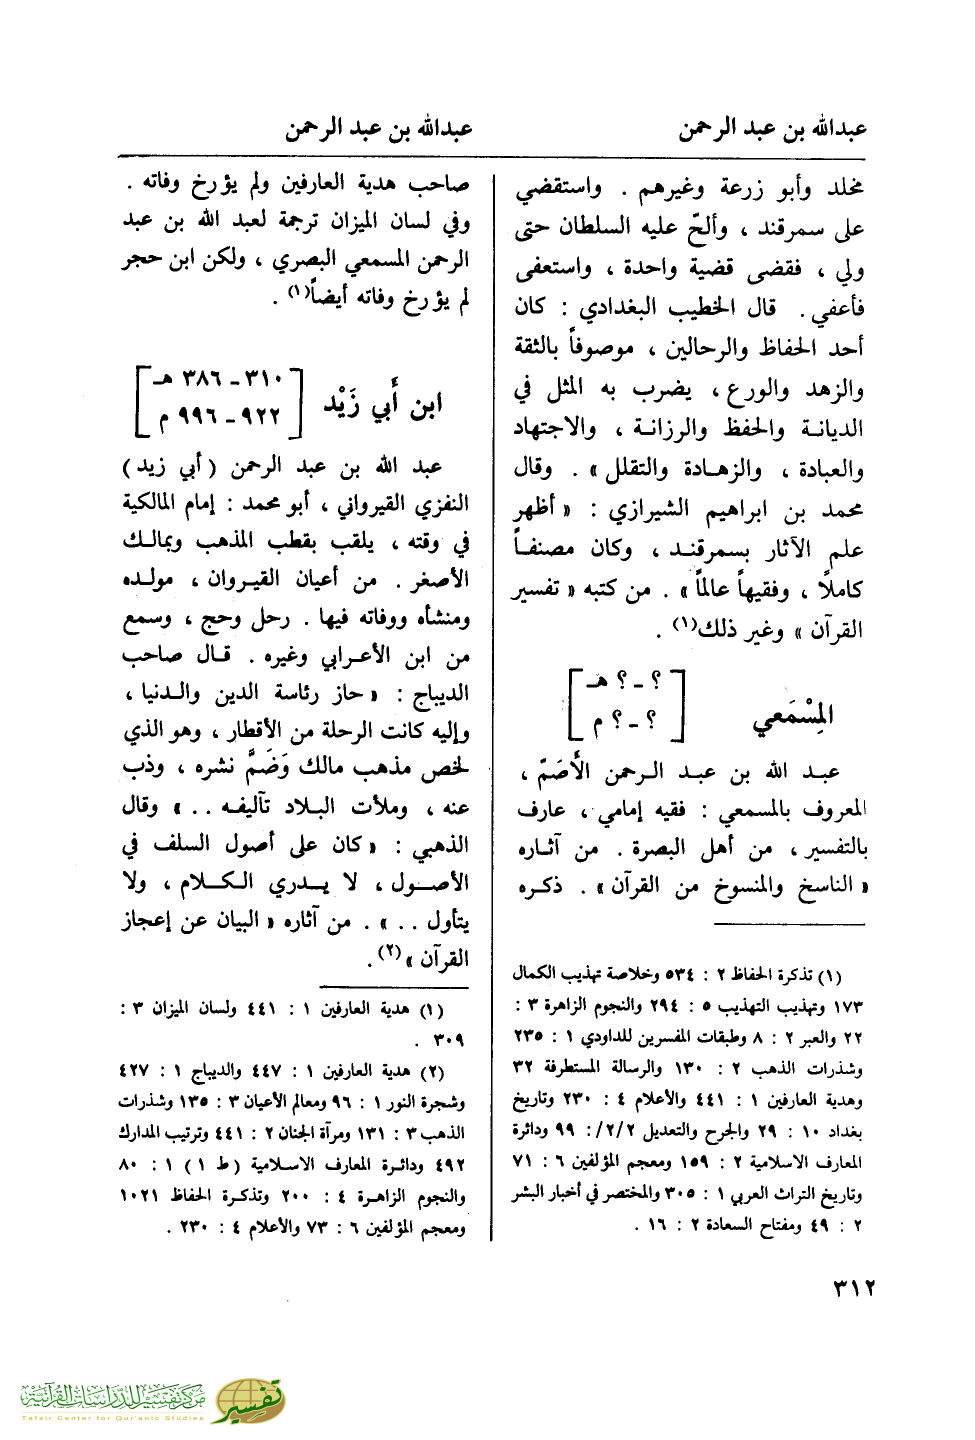 عبدالله بن عبد الرحمن
عبدالله بن عبد الرحمن
مخلد وأبو زرعة وغيرهم . واستقضي
على سمرقند ، وألحّ عليه السلطان حتى
ولي ، فقضى قضية واحدة ، واستعفى
فأعفي . قال الخطيب البغدادي : كان
أحد الحفاظ والرحالين ، موصوفاً بالثقة
والزهد والورع ، يضرب به المثل في
الديانة والحفظ والرزانة ، والاجتهاد
والعبادة ، والزهادة والتقلل » . وقال
محمد بن ابراهيم الشيرازي : « أظهر
علم الآثار بسمرقند ، وكان مصنفاً
كاملاً ، وفقيهاً عالماً » . من كتبه « تفسير
القرآن » وغير ذلك(١) .
المِسْمَعي
[ ؟ - ؟ هـ
؟ - ؟ م ]
عبد الله بن عبد الرحمن الأَصَمّ ،
المعروف بالمسمعي : فقيه إمامي ، عارف
بالتفسير ، من أهل البصرة . من آثاره
« الناسخ والمنسوخ من القرآن » . ذكره
(١) تذكرة الحفاظ ٢ : ٥٣٤ وخلاصة تهذيب الكمال
١٧٣ وتهذيب التهذيب ٥ : ٢٩٤ والنجوم الزاهرة ٣ :
٢٢ والعبر ٢ : ٨ وطبقات المفسرين للداودي ١ : ٢٣٥
وشذرات الذهب ٢ : ١٣٠ والرسالة المستطرفة ٣٢
وهدية العارفين ١ : ٤٤١ والأعلام ٤ : ٢٣٠ وتاريخ
بغداد ١٠ : ٢٩ والجرح والتعديل ٢/٢/ : ٩٩ ودائرة
المعارف الاسلامية ٢ : ١٥٩ ومعجم المؤلفين ٦ : ٧١
وتاريخ التراث العربي ١ : ٣٠٥ والمختصر في أخبار البشر
٢ : ٤٩ ومفتاح السعادة ٢ : ١٦ .
صاحب هدية العارفين ولم يؤرخ وفاته .
وفي لسان الميزان ترجمة لعبد الله بن عبد
الرحمن المسمعي البصري ، ولكن ابن حجر
لم يؤرخ وفاته أيضاً(١) .
ابن أَبي زَيْد
[ ٣١٠ - ٣٨٦ هـ
٩٢٢ - ٩٩٦ م ]
عبد الله بن عبد الرحمن ( أبي زيد )
النفزي القيرواني ، أبو محمد : إمام المالكية
في وقته ، يلقب بقطب المذهب وبمالك
الأصغر . من أعيان القيروان ، مولده
ومنشأه ووفاته فيها . رحل وحج ، وسمع
من ابن الأعرابي وغيره . قال صاحب
الديباج : « حاز رئاسة الدين والدنيا ،
وإليه كانت الرحلة من الأقطار ، وهو الذي
لخص مذهب مالك وَضَمَّ نشره ، وذب
عنه ، وملأت البلاد تآليفه . . » وقال
الذهبي : « كان على أصول السلف في
الأصول ، لا يدري الكلام ، ولا
يتأول . . » . من آثاره « البيان عن إعجاز
القرآن »(٢) .
(١) هدية العارفين ١ : ٤٤١ ولسان الميزان ٣ :
٣٠٩ .
(٢) هدية العارفين ١ : ٤٤٧ والديباج ١ : ٤٢٧
وشجرة النور ١ : ٩٦ ومعالم الأعيان ٣ : ١٣٥ وشذرات
الذهب ٣ : ١٣١ ومرآة الجنان ٢ : ٤٤١ وترتيب المدارك
٤٩٢ ودائرة المعارف الاسلامية ( ط ١ ) ١ : ٨٠
والنجوم الزاهرة ٤ : ٢٠٠ وتذكرة الحفاظ ١٠٢١
ومعجم المؤلفين ٦ : ٧٣ والأعلام ٤ : ٢٣٠ .
٣١٢
مركز تفسير للدراسات القرآنية
Tafsir Center for Qur'anic Studies
تفسير